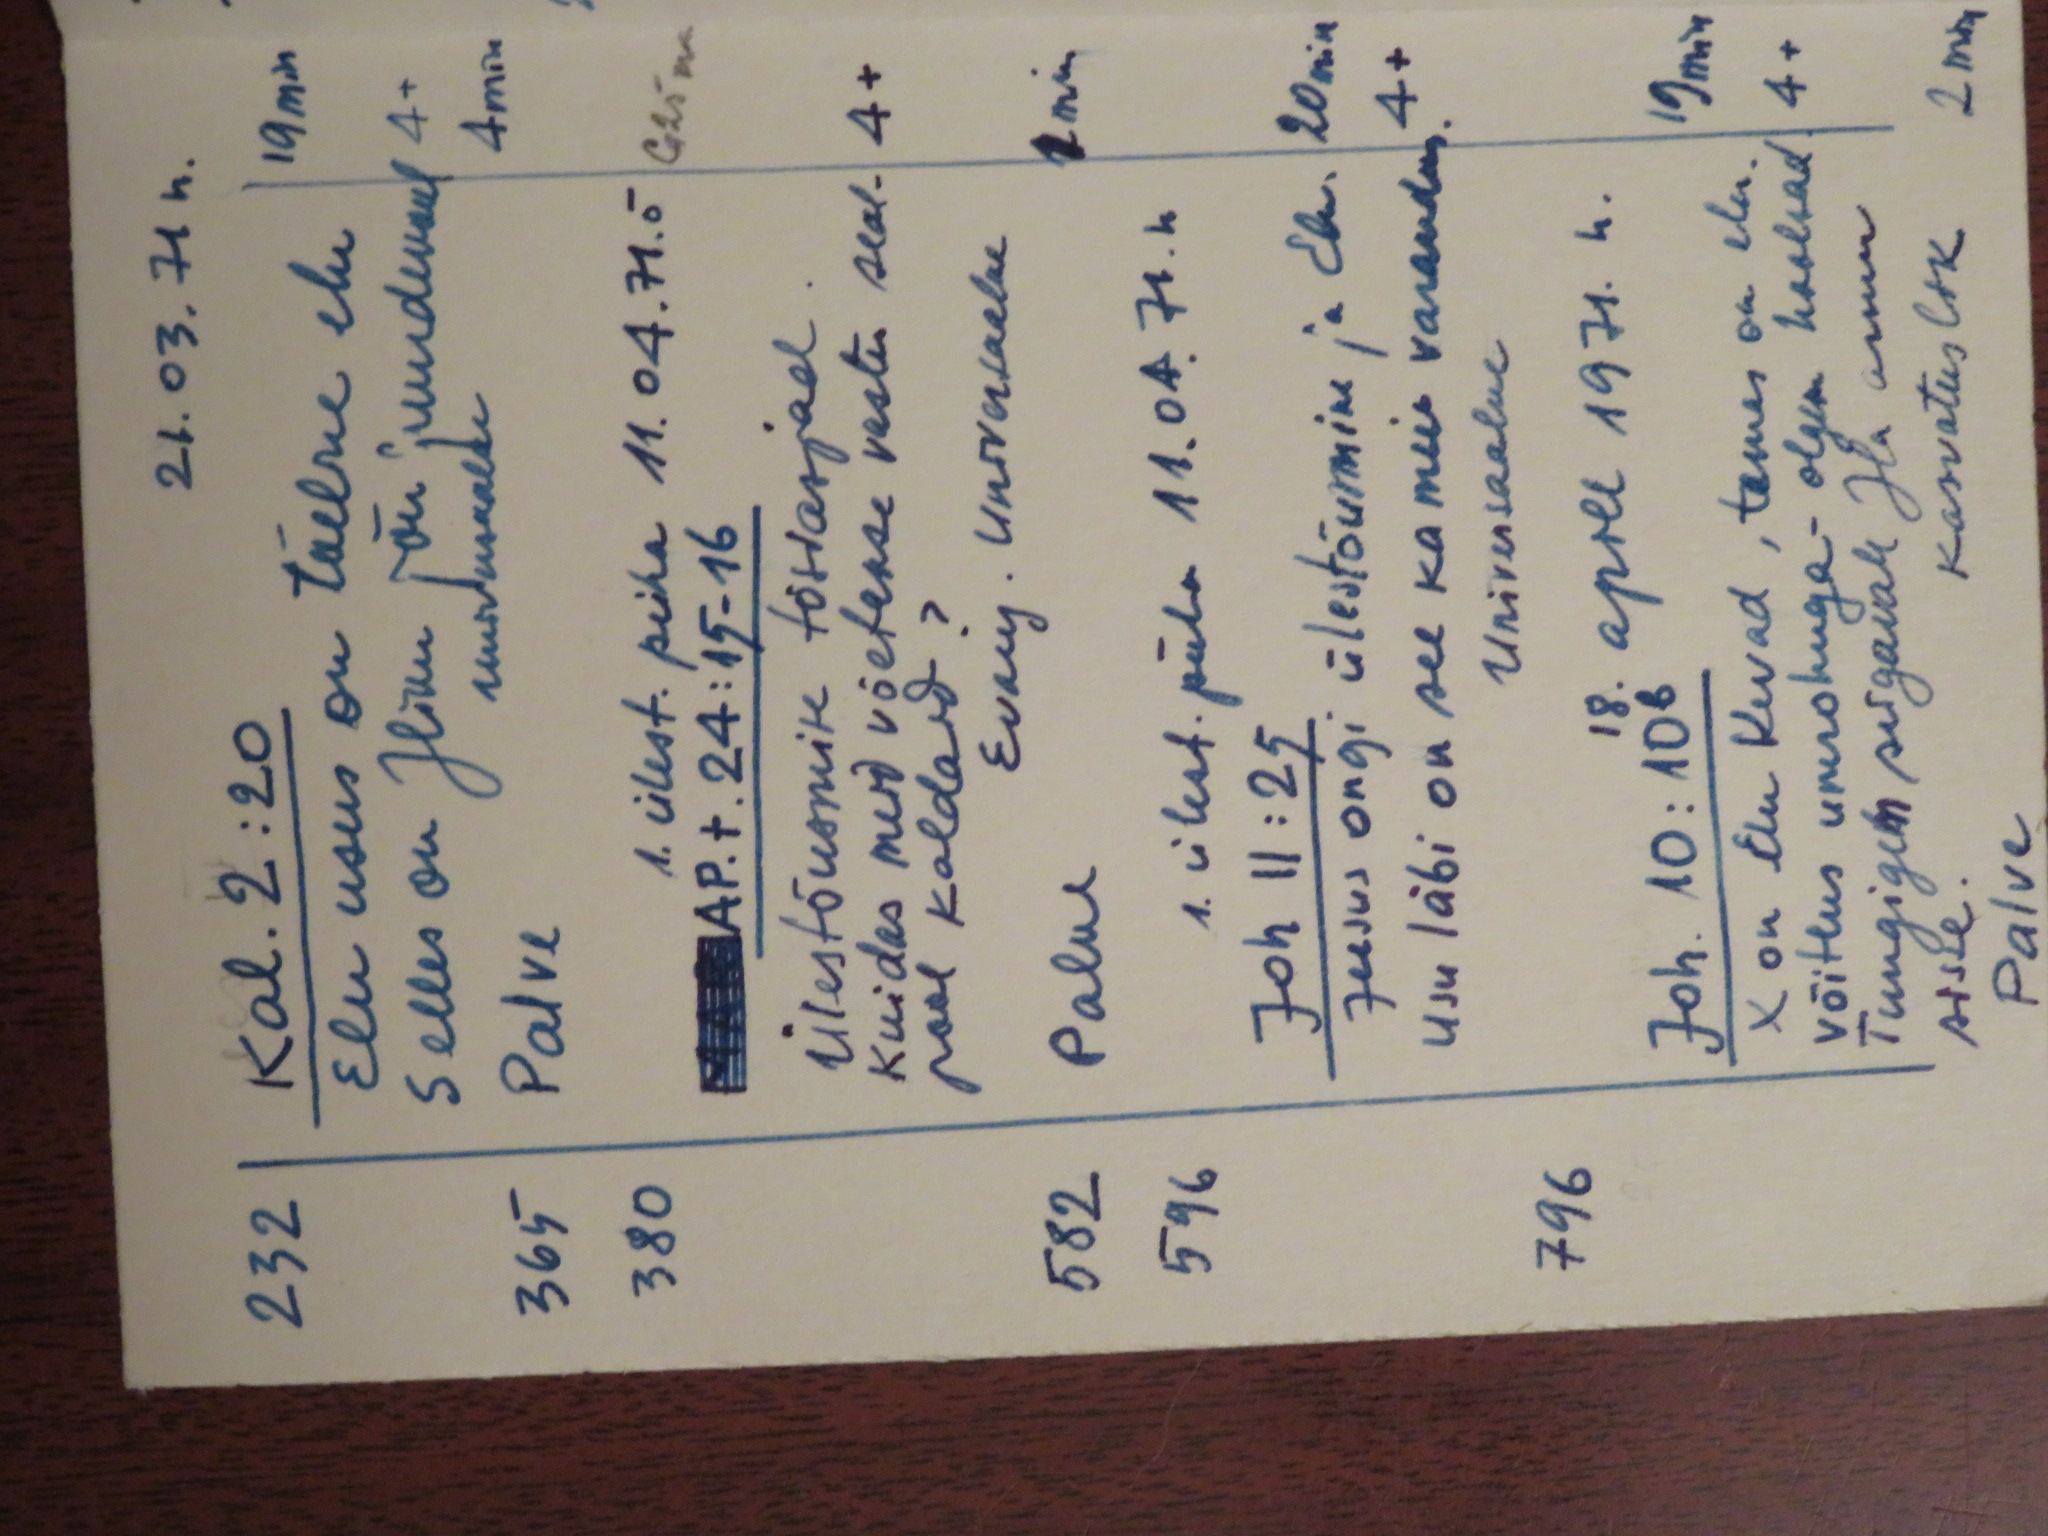 21.03.71 h.
232 Kal. 2:20 19min
Elu usus on täeline elu
Selles on Jlõuu jõu juurdevool 4+
universaalne 4min
365 Palve
380 1. ülest. püha 11.04.71.õ
AP.t. 24:15-16
Ülestõusmise tõstarjael.
Kuidas meid võetakse vastu seal- 4+
pool kaldaid?
Evang. Universaalne
582 Palve 2min
596 1. ülest. püha 11.04.71.h
Joh 11:25 20min
Jeesus ongi ülestõusmine ja Elu.
Usu läbi on see ka meie varandus. 4+
Universaalne
796 18. aprill 1971. h.
Joh. 10:10b 19min
X on Elu Kevad, temas on elu
võitlus umrohuga- olgem hoolsad 4+
Tungigem sügavale Jla armu
sisse. Kasvatuslik
Palve 2min